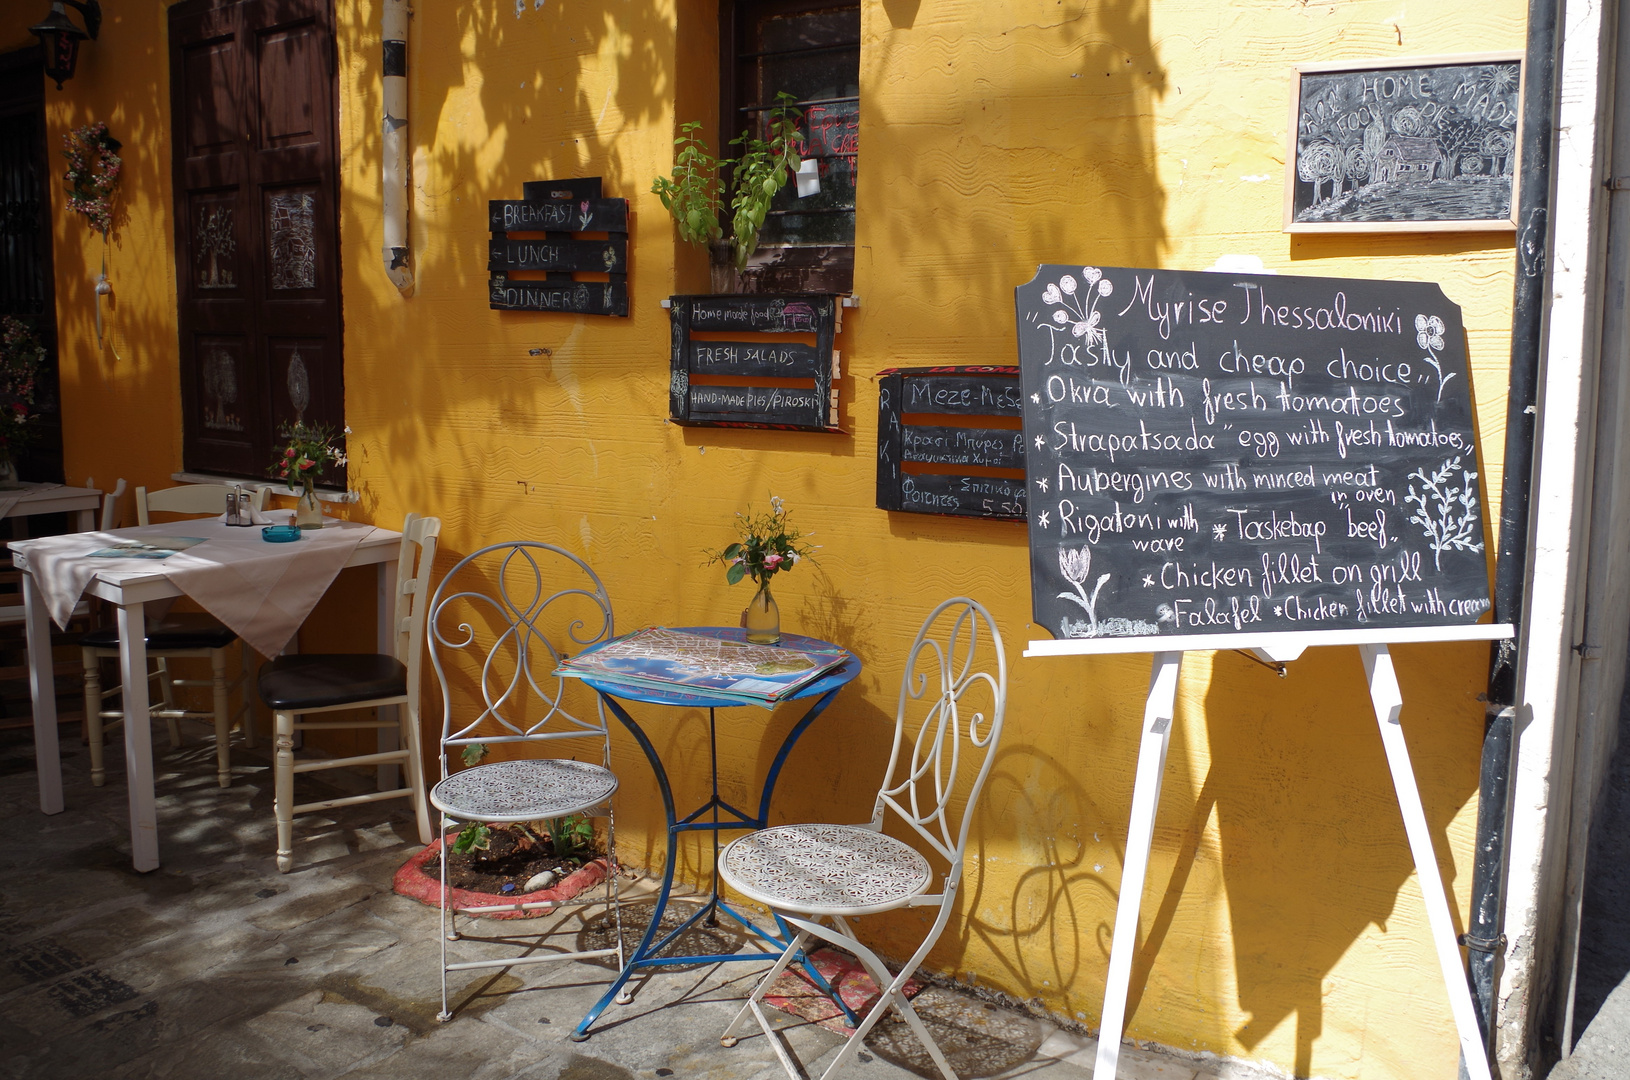 BREAKFAST
LUNCH
DINNER
Home made food
FRESH SALADS
HAND-MADE PIES/PIROSKI
LA COM
MEZE-MEΣE
RAKI
Κρασί Μπύρες
Αναψυκτικα Χυμοί
Φοιτητές
5.50
HOME MADE
FOOD
Myrise Thessaloniki
"Tasty and cheap choice"
* Okra with fresh tomatoes
* Strapatsada "egg with fresh tomatoes"
* Aubergines with minced meat
in oven
* Rigatoni with * Taskebap "beef"
wave
* Chicken fillet on grill
* Falafel * Chicken fillet with cream